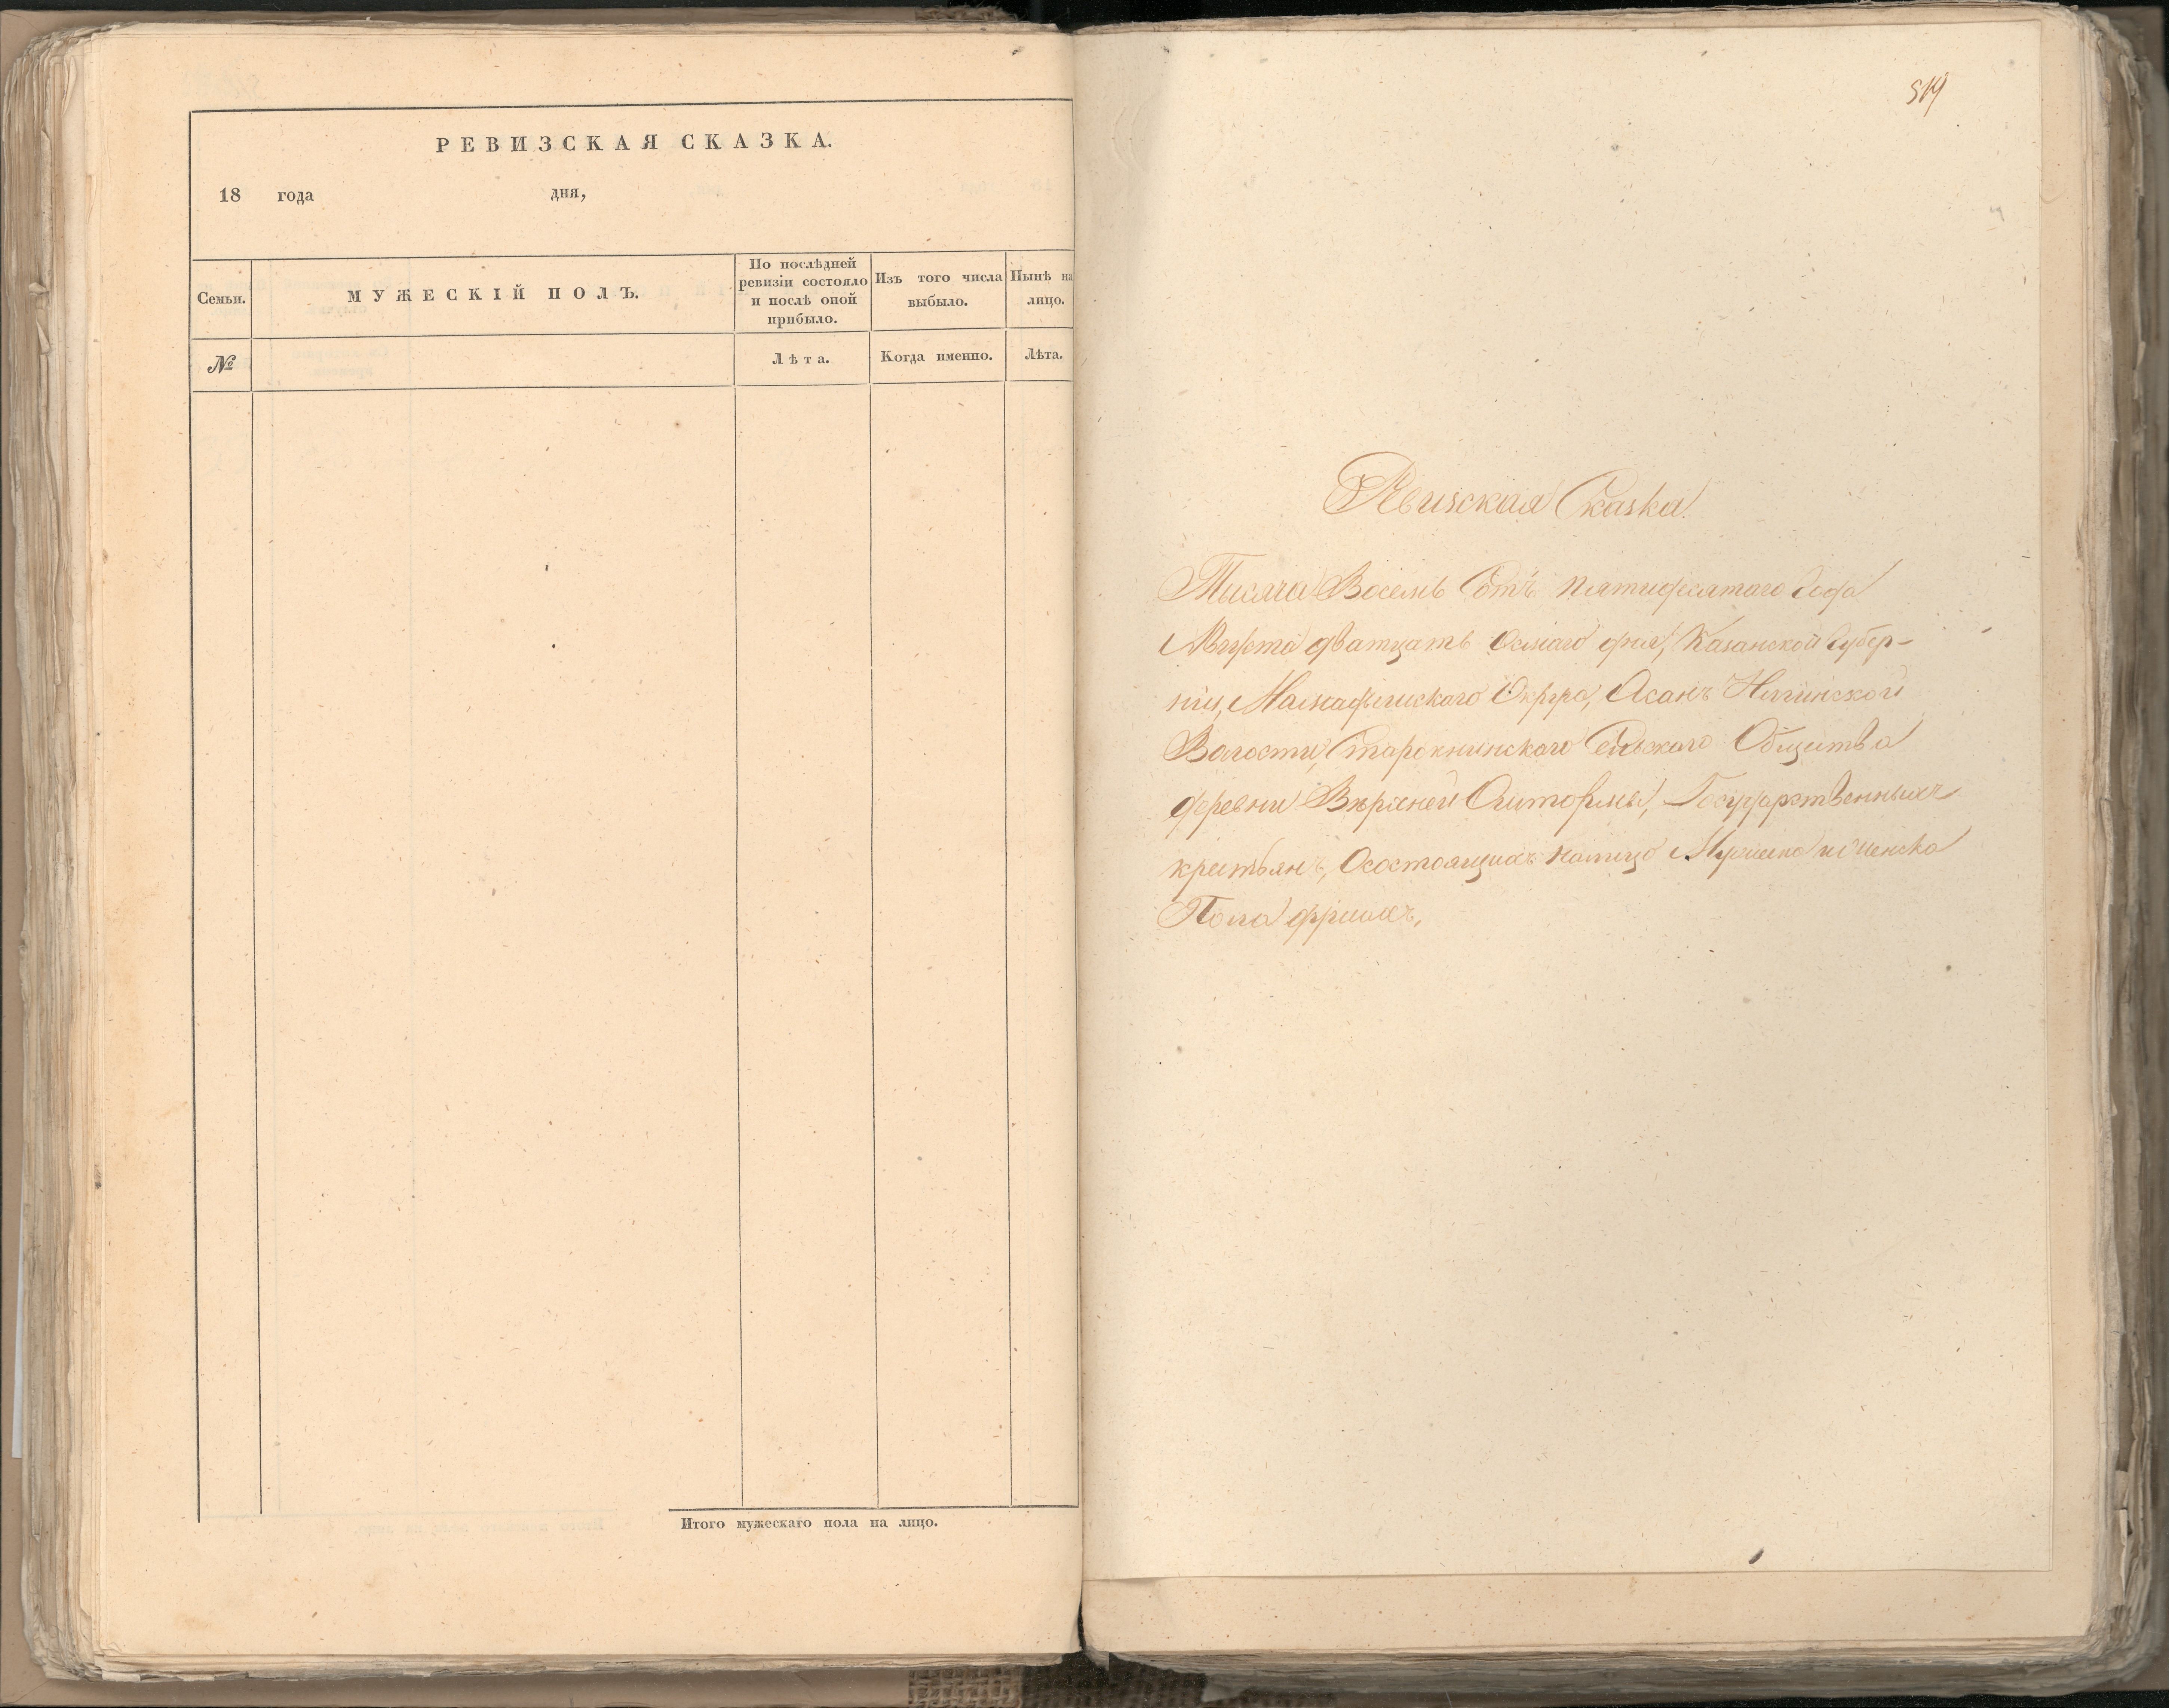 РЕВИЗСКАЯ СКАЗКА.
18 года дня,
Семьи.
МУЖЕСКІЙ ПОЛЪ.
По послѣдней
ревизіи состояло
и послѣ оной
прибыло.
Изъ того числа
выбыло.
Нынѣ на
лицо.
№
Лѣта.
Когда именно.
Лѣта.
Итого мужескаго пола на лицо.
519
Ревизская Сказка.
Тысяча Восемь Сотъ пятидесятаго Года
Августа дватцать осмаго дня, Казанской Губер-
ніи, Мамадышскаго Округа, Асанъ
Волости, Сельскаго Общества
деревни Государственныхъ
крестьянъ, Осостоящихъ налицо Мужеска и женска
Пола душахъ,